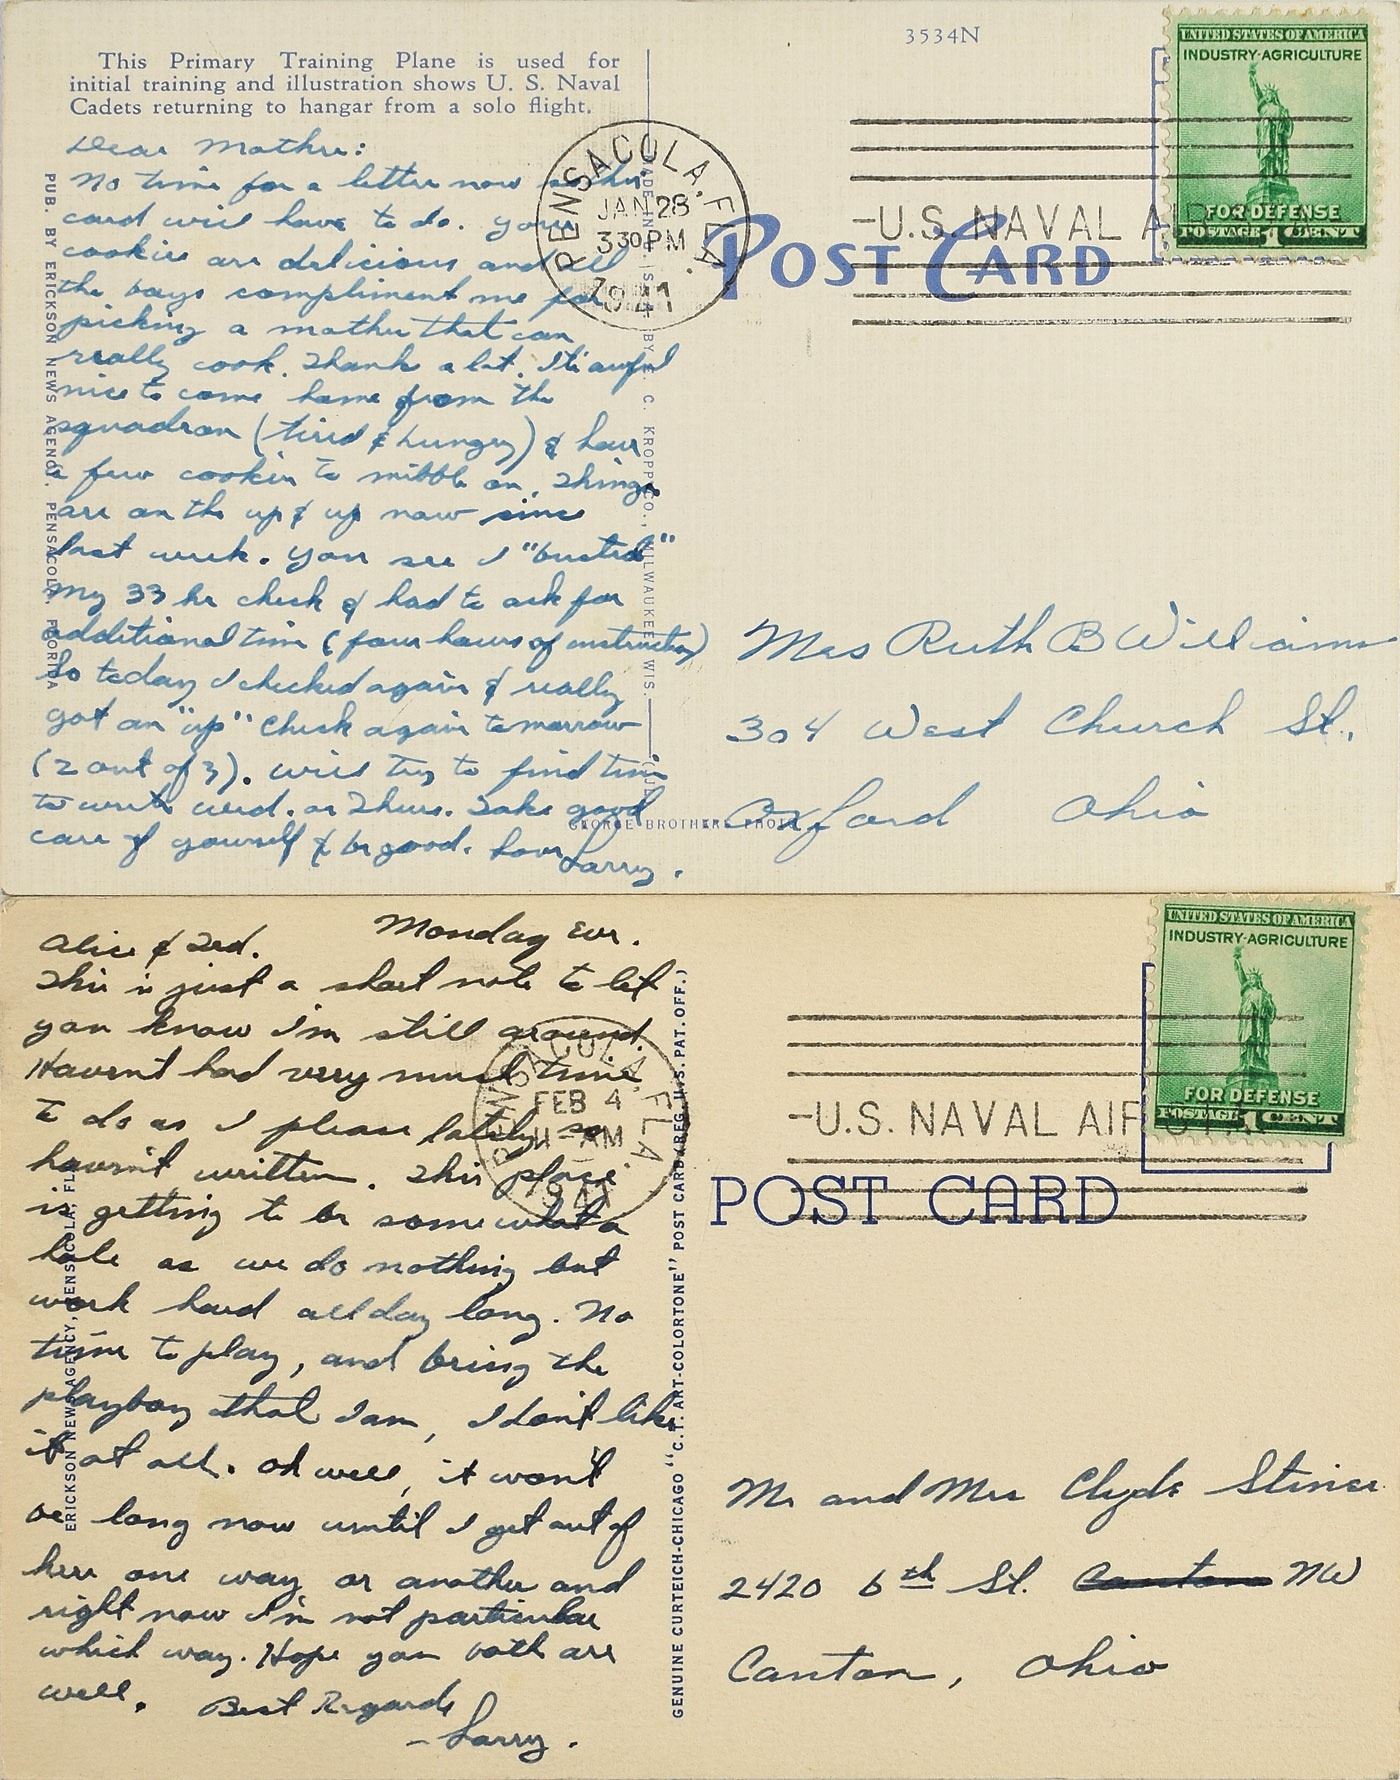 3534N
UNITED STATES OF AMERICA
INDUSTRY-AGRICULTURE
FOR DEFENSE
POSTAGE 1 CENT
This Primary Training Plane is used for
initial training and illustration shows U. S. Naval
Cadets returning to hangar from a solo flight.
PENSACOLA, FLA.
JAN 28
330 PM
1941
-U.S. NAVAL AIR
POST CARD
PUB. BY ERICKSON NEWS AGENCY, PENSACOLA, FLORIDA
MADE IN U.S.A. BY E. C. KROPP CO., MILWAUKEE, WIS.
Dear Mother:
No time for a letter now so this
card will have to do. Your
cookies are delicious and all
the boys compliment me for
picking a mother that can
really cook. Thanks a lot. It's awful
nice to come home from the
squadron (tired & hungry) & have
a few cookies to nibble on. Things
are on the up & up now since
last week. You see I "busted"
my 33 hr check & had to ask for
additional time (four hours of instruction)
So today I checked again & really
got an "up" Check again tomorrow
(2 out of 3). Will try to find time
to write wed. or Thurs. Take good
care of yourself & be good. Love
Larry.
GEORGE BROTHERS PHOTO
Mrs Ruth B Williams
304 West Church St.,
Oxford Ohio
UNITED STATES OF AMERICA
INDUSTRY-AGRICULTURE
FOR DEFENSE
POSTAGE 1 CENT
PENSACOLA, FLA.
FEB 4
11-AM
1941
-U.S. NAVAL AIR STA.
POST CARD
ERICKSON NEWS AGENCY, PENSACOLA, FLA.
GENUINE CURTEICH-CHICAGO "C.T. ART-COLORTONE" POST CARD (REG. U.S. PAT. OFF.)
Monday Eve.
Alice & Ted.
This is just a short note to let
you know I'm still around.
Haven't had very much time
to do as I please lately so
haven't written. This place
is getting to be somewhat a
hole as we do nothing but
work hard all day long. No
time to play, and being the
playboy that I am, I don't like
it at all. Oh well, it won't
be long now until I get out of
here one way or another and
right now I'm not particular
which way. Hope you both are
well. Best Regards
- Larry.
Mr and Mrs Clyde Stiner
2420 6th St. Canton NW
Canton, Ohio